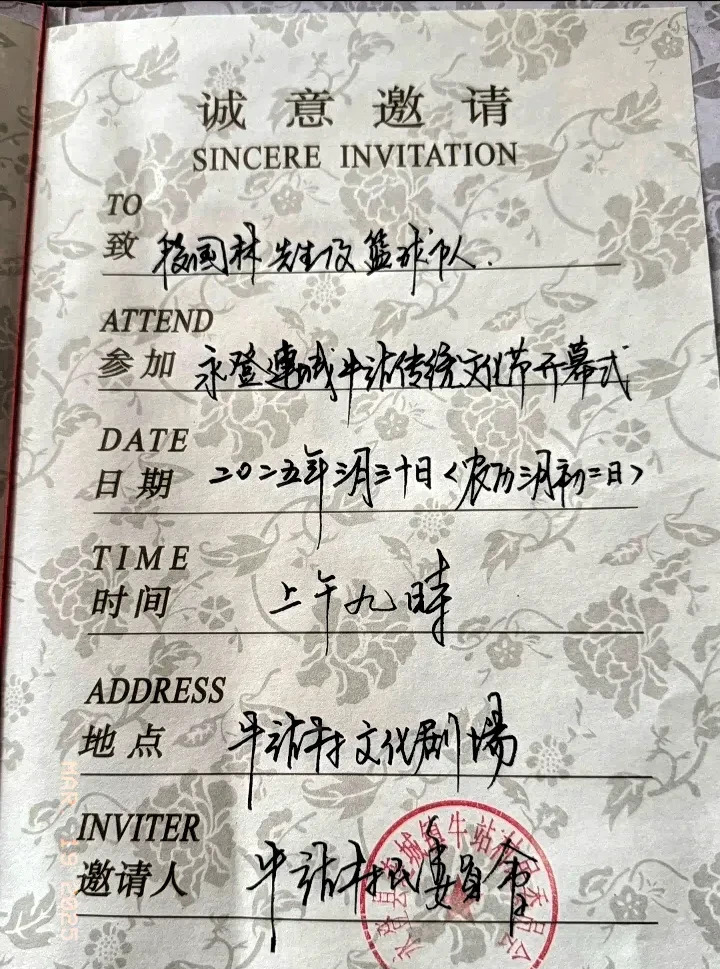 诚意邀请
SINCERE INVITATION
TO
致 国林先生及篮球队人.
ATTEND
参加 永登连城牛站传统文化节开幕式
DATE
日期 二〇二五年三月三十日〈农历三月初二日〉
TIME
时间 上午九時
ADDRESS
地点 牛站村文化剧場
INVITER
邀请人 牛站村民委员会
永登县连城镇牛站村民委员会
MAR 19 2025